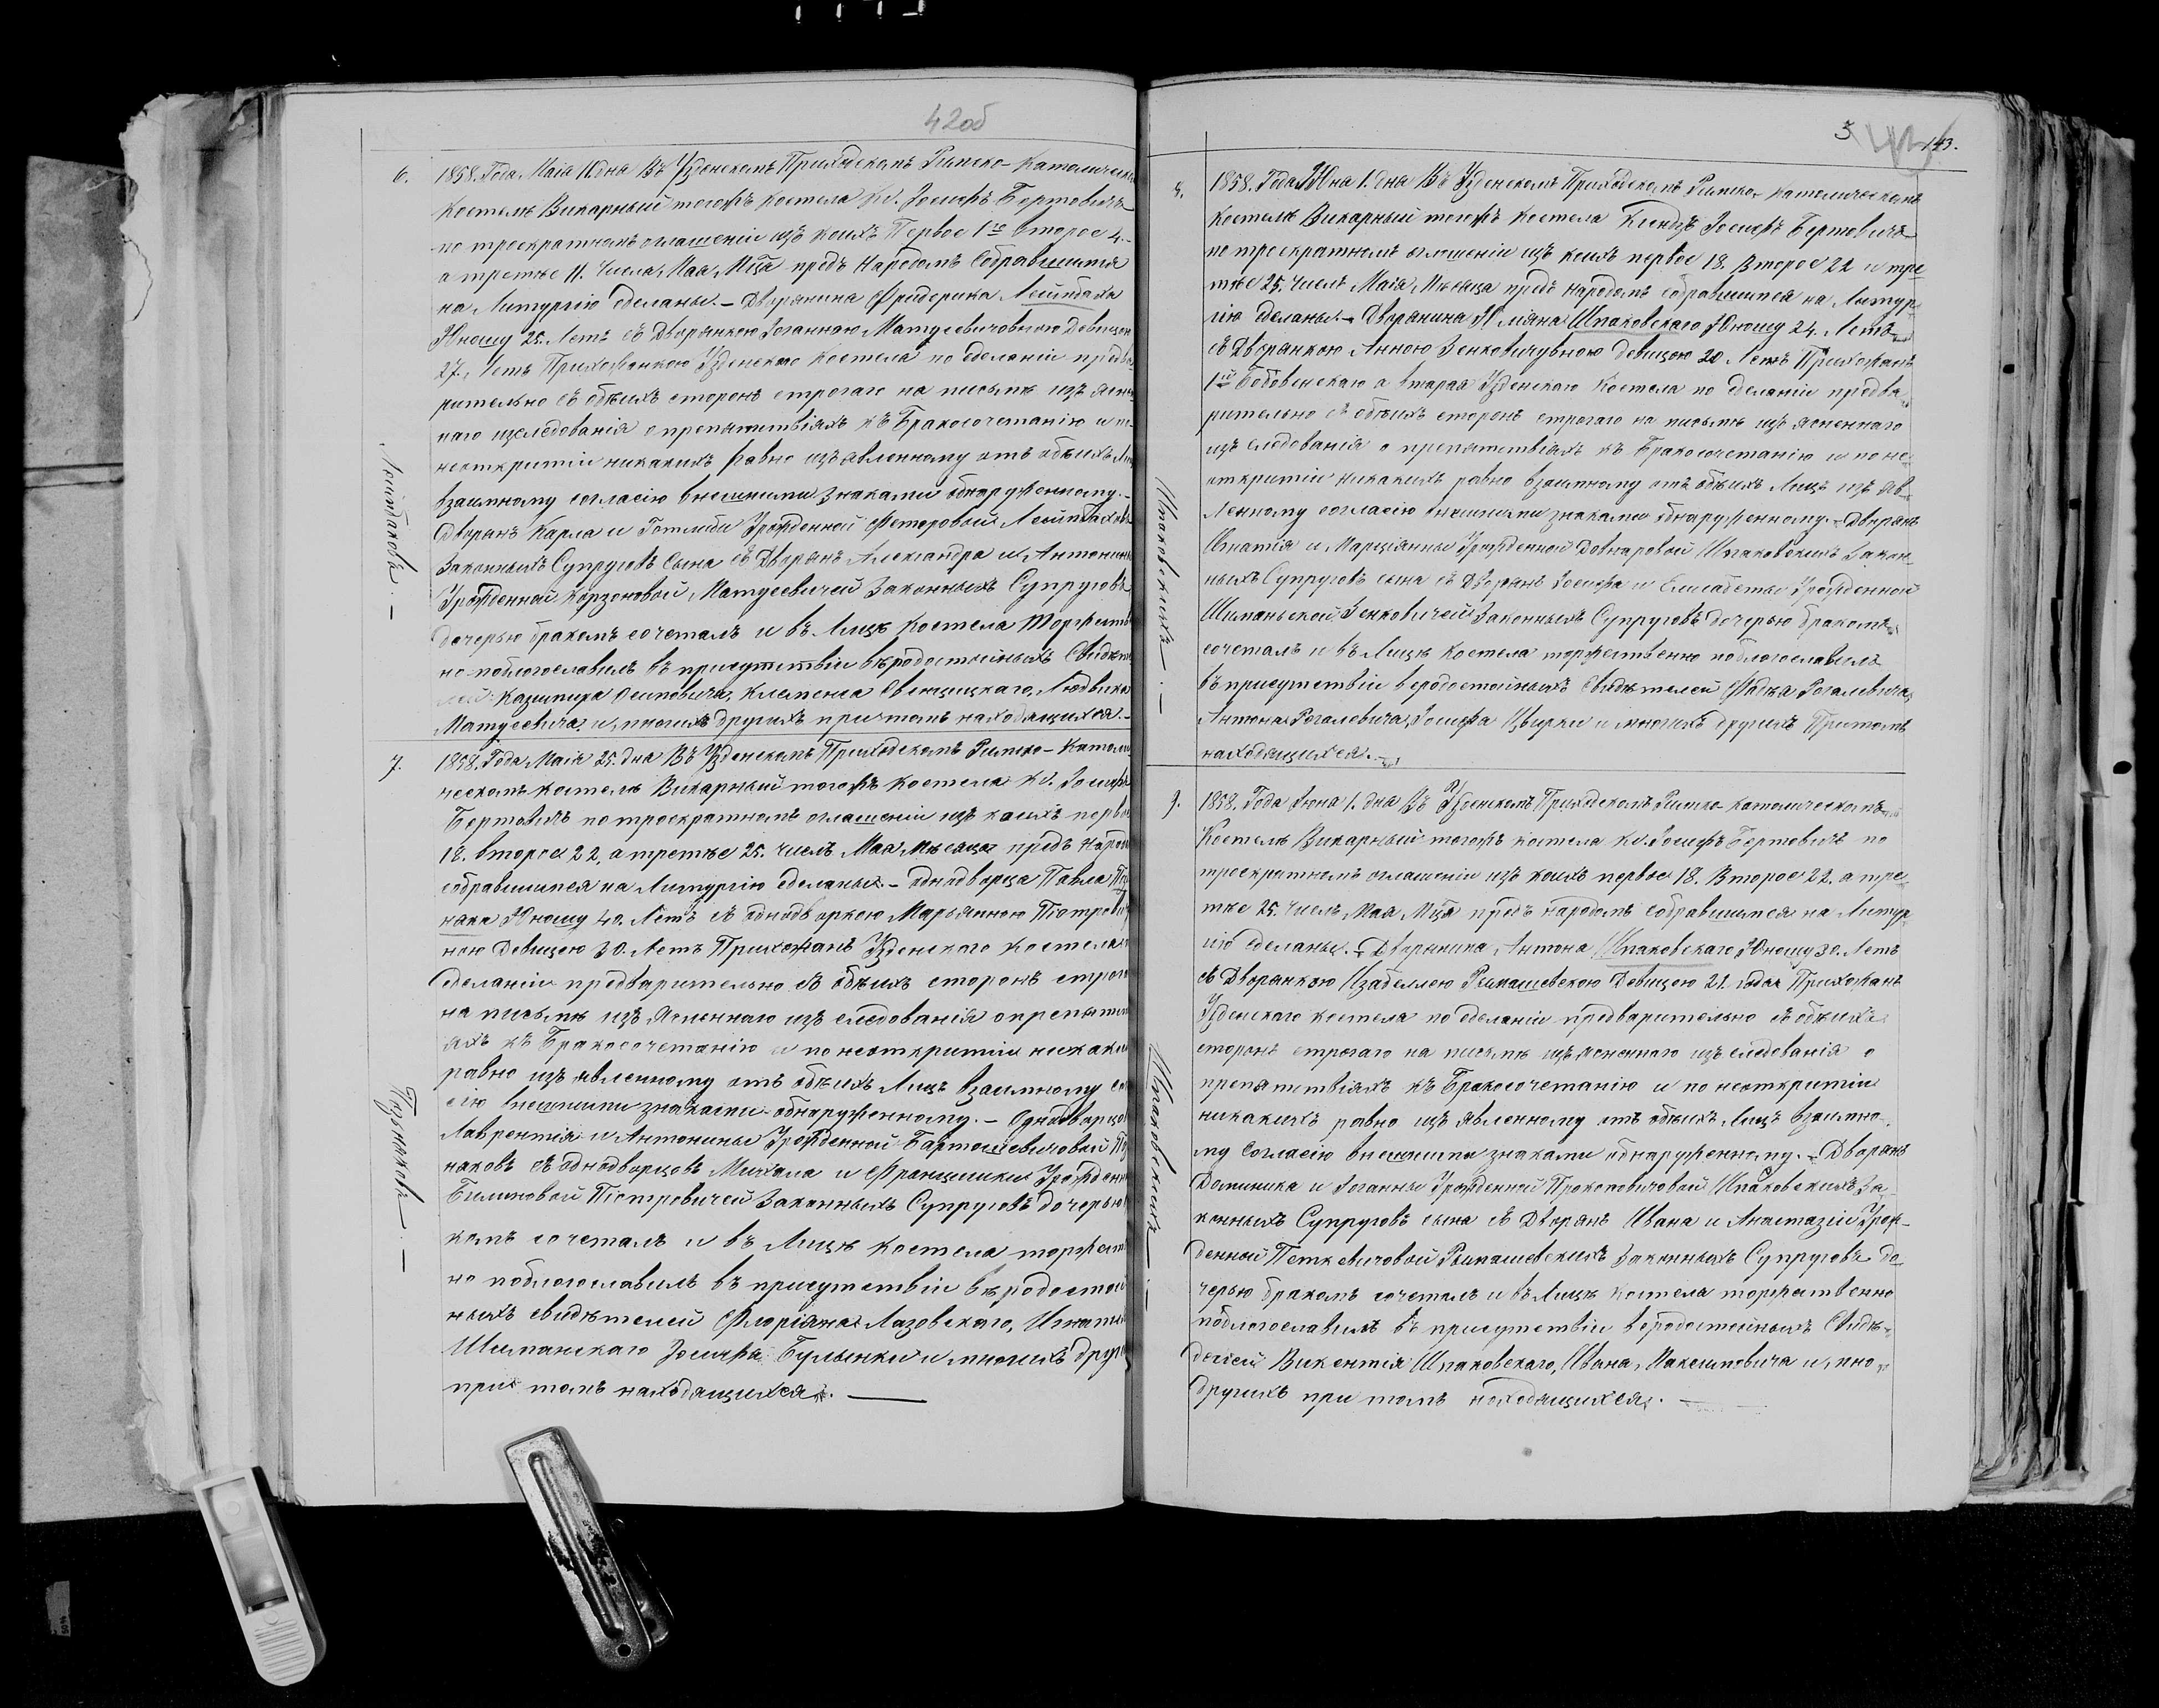 42об
6.
1858. Года Маія 11. дна Въ Узденскомъ Приходскомъ Римско-Католическо
Костелѣ Викарный тогожъ Костела Кс. Іосифъ Бертовичъ
по троекратномъ оглашеніи изъ коихъ Первое 1го второе 4.
а третье 11. Числа, Мая Мца предъ Народомъ Собравшимся
на Литургію сделаны. – Дворянина Фридерика Лейтбаха
Юношу 25. Летъ съ Дворянкою Іоганною Матусевичовною Девицею
27. Летъ Прихожанкою Узденского Костела по сделаніи предва
рительно съ обѣихъ сторонъ строгаго на письмѣ изъ яснен
наго изследованія о препятствіяхъ къ Бракосочетанію и по
неоткритіи никакихъ равно изъявленному отъ обѣихъ Ли
взаимному согласію внешними знаками обнаруженному. –
Дворянъ Карла и Готлибы Урожденной Феторовой Лейтбаховъ
Законныхъ Супруговъ Сына съ Дворянъ Александра и Антонины
Урожденной Корзоновой, Матусевичей Законныхъ Супруговъ
дочерью бракомъ сочеталъ и въ Лицѣ Костела Торжестве
но поблогославилъ въ присутствіи вѣродостойныхъ Свидѣте
лей Казимира Осиповича, Клеменса Свенцицкаго, Людвика
Матусевича и, многихъ другихъ притомъ находящихся. –
Лейтбаховъ. –
7.
1858. Года Маія 25. дна Въ Узденскомъ Приходскомъ Римско-Католи
ческомъ Костелѣ Викарный тогожъ Костела Кс. Іосифъ
Бертовичъ по троекратномъ оглашеніи изъ коихъ первое
18. второе 22, а третье 25. числъ Мая мѣсяца предъ Народо
собравшимся на Литургію сделаны. – однодворца Павла Поз
нака Юношу 40. Летъ съ однодворкою Марьянною Піотрович
ною Девицею 30. Летъ Прихожанъ Узденского Костела
сделаніи предварительно съ обѣихъ сторонъ строго
на письмѣ изъ Ясненнаго изъ следованія о препятстві
яхъ къ Бракосочетанію и по неоткритіи никаки
равно изъ явленному отъ обѣихъ Лицъ Взаимному со
сію внешними знаками обнаруженному. – Однодворцо
Лаврентія и Антонины Урожденной Бартошевичовой Поз
наковъ съ однодворцовъ Михала и Францишки Урожден
Билиновой Піотровичей Законныхъ Супруговъ дочерью
комъ сочеталъ и въ Лицѣ Костела торжест
но поблогославилъ въ присутствіи вѣродостой
ныхъ свидѣтелей Флоріяна Лазовскаго, Игнатія
Шиманскаго Іосифа Булынки и многихъ друг
при томъ находящихся. —
Познаковъ. –
3
143.
8.
1858. Года Юна 1. дна Въ Узденскомъ Приходскомъ Римско-католическомъ
Костелѣ Викарный тогожъ Костела Ксіондзъ Іосифъ Бертовичъ
по троекратномъ оглошеніи изъ коихъ первое 18. Второе 22 и тре
тье 25. Числъ Маія, Мѣсяца предъ народомъ собравшимся на Литур
гію сделаны. – Дворянина Шпаковскаго Юношу 24. Летъ
съ Дворянкою Анною Зенковичувною девицею 20. Летъ Прихожанъ
1й а вторая Узденского Костела по сделаніи предва
рительно съ обѣихъ сторонъ строгаго на письмѣ изъ ясненнаго
изъ следованія о препятствіяхъ къ Бракосочетанію и по не
откритіи никакихъ равно взаимному отъ обѣихъ Лицъ изъ яв
Ленному согласію внешними знаками обнаруженному. – Дворянъ
Игнатія и Марціянны Урожденной Довнаровой Шпаковскихъ Закон
ныхъ Супруговъ сына съ Дворянъ Іосифа и Елисабеты Урожденной
Шиманьской Зенковичей Законныхъ Супруговъ дочерью бракомъ
сочеталъ и въ Лицѣ Костела торжественно поблогославилъ
въ присутствіи веродостойныхъ Свидѣтелей Фадѣя Рогалевича,
Антона Рогалевича, Іосифа Цвирки и многихъ другихъ Притомъ
находящихся. –
Шпаковскихъ. –
9.
1858. Года Іюна 1. дна Въ Узденскомъ Приходскомъ Римско-католическомъ
Костелѣ Викарный тогожъ костела Кс. Іосифъ Бертовичъ по
троекратномъ оглашеніи изъ коихъ первое 18. Второе 22. а тре
тье 25. Числъ, Мая, Мца предъ народомъ собравшимся на Литур
гію сделаны. – Дворянина Антона Шпаковскаго Юношу 30. Летъ
съ Дворянкою Изабеллею Римашевскою Девицею 21. года Прихожанъ
Узденскаго костела по сделаніи предварительно съ обѣихъ
сторонъ строгаго на письмѣ изъ ясненнаго изъ следованія о
препятствіяхъ къ Бракосочетанію и по неоткритіи
никакихъ равно изъ явленному отъ обѣихъ Лицъ взаимно
му Согласію внешними знаками обнаруженному. – Дворянъ
Доминика и Іоганны Урожденной Прокоповичовой Шпаковскихъ За
конныхъ Супруговъ сына съ Дворянъ Ивана и Анастазіи Урож
денной Петкевичовой Римашевскихъ Законныхъ Супруговъ до
черью бракомъ сочеталъ и въ Лицѣ Костела торжественно
поблогославилъ въ присутствіи веродостойныхъ Свидѣ
телей Викентія Шпаковскаго, Ивана, Макелповича и, мно
другихъ при томъ находящихся. –
Шпаковскихъ. –